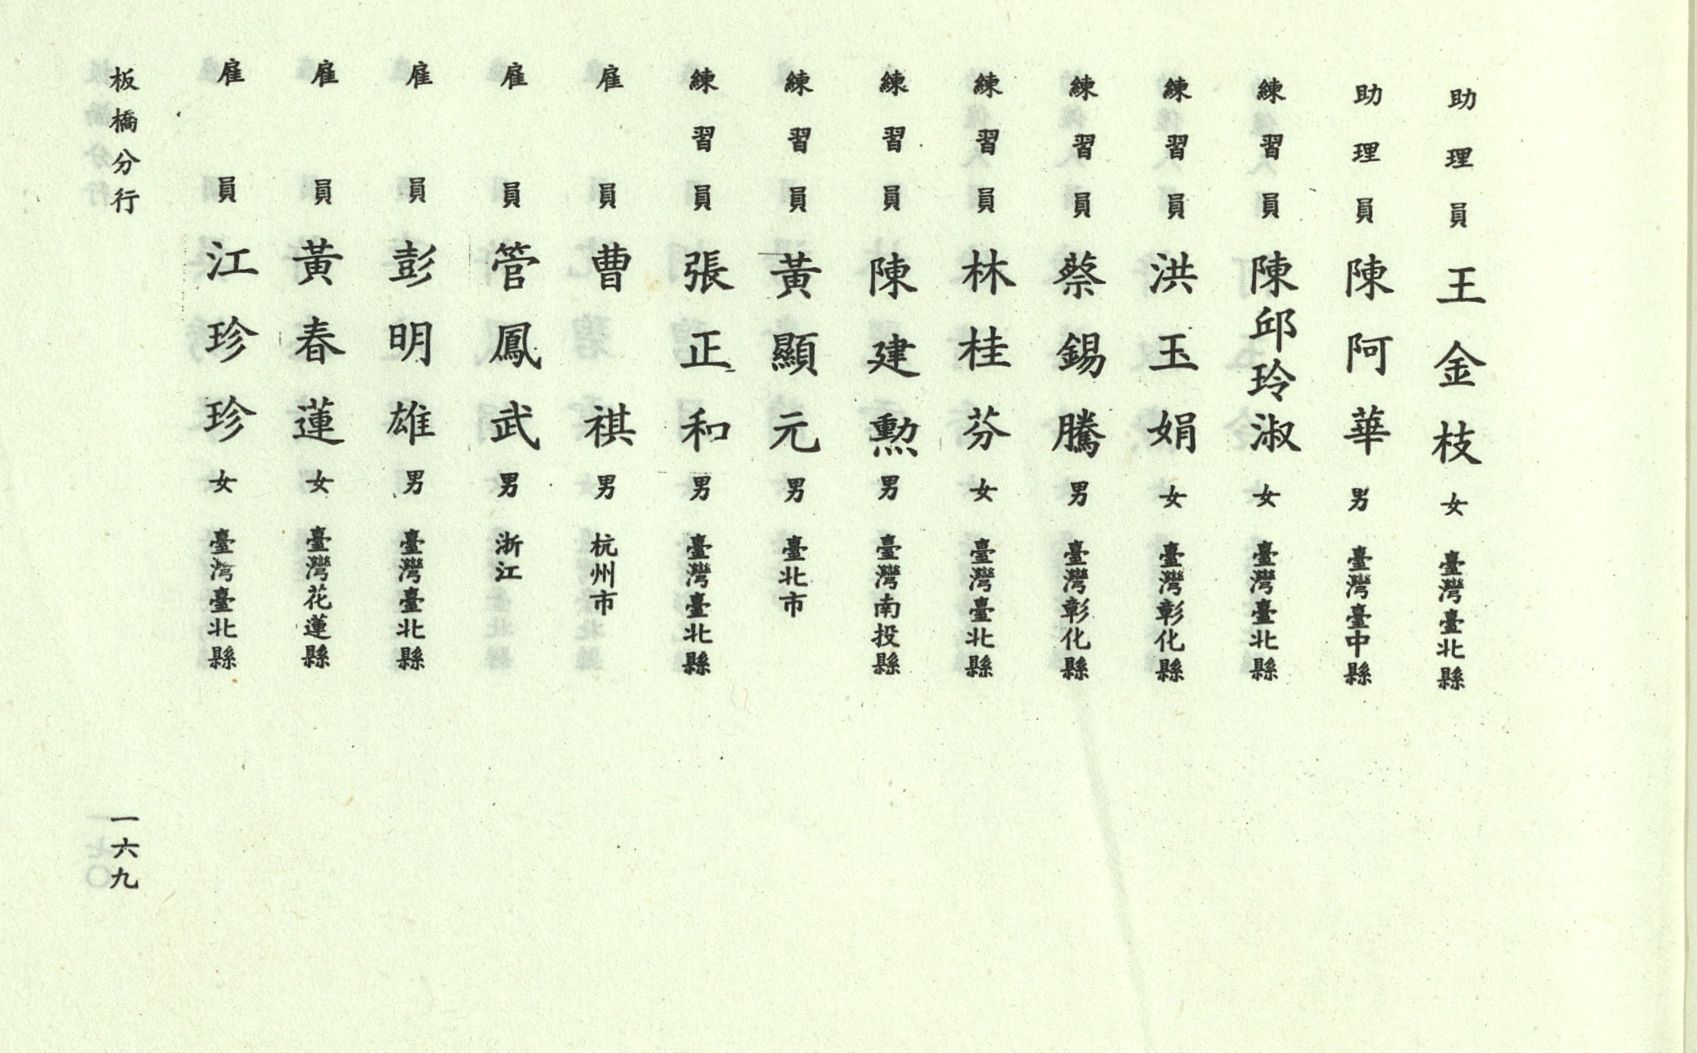 助理員 王金枝 女 臺灣臺北縣
助理員 陳阿華 男 臺灣臺中縣
練習員 陳邱玲淑 女 臺灣臺北縣
練習員 洪玉娟 女 臺灣彰化縣
練習員 蔡錫騰 男 臺灣彰化縣
練習員 林桂芬 女 臺灣臺北縣
練習員 陳建勲 男 臺灣南投縣
練習員 黃顯元 男 臺北市
練習員 張正和 男 臺灣臺北縣
雇員 曹祺 男 杭州市
雇員 管鳳武 男 浙江
雇員 彭明雄 男 臺灣臺北縣
雇員 黃春蓮 女 臺灣花蓮縣
雇員 江珍珍 女 臺灣臺北縣
板橋分行 一六九